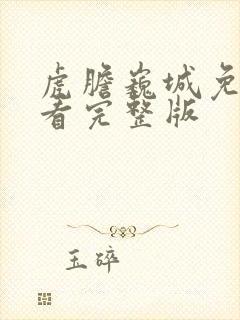 虎膽巍城免
看完整版
玉碎